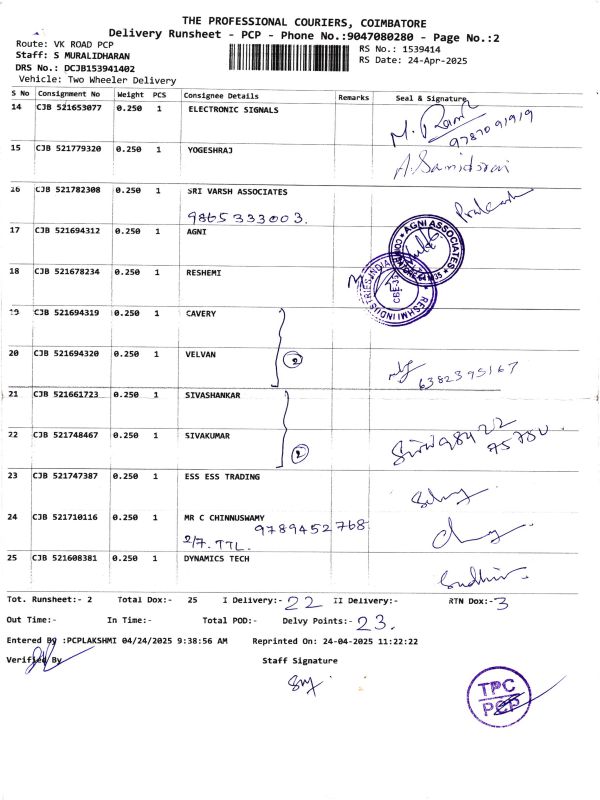 THE PROFESSIONAL COURIERS, COIMBATORE
Delivery Runsheet - PCP - Phone No.:9047080280 - Page No.:2
Route: VK ROAD PCP
Staff: S MURALIDHARAN
DRS No.: DCJB153941402
Vehicle: Two Wheeler Delivery
RS No.: 1539414
RS Date: 24-Apr-2025
S No Consignment No Weight PCS Consignee Details Remarks Seal & Signature
14 CJB 521653077 0.250 1 ELECTRONIC SIGNALS
9787091919
15 CJB 521779320 0.250 1 YOGESHRAJ
16 CJB 521782308 0.250 1 SRI VARSH ASSOCIATES
9865333003.
17 CJB 521694312 0.250 1 AGNI
AGNI ASSOCIATES
18 CJB 521678234 0.250 1 RESHEMI
RESHMI INDUSTRIES INDIA
19 CJB 521694319 0.250 1 CAVERY
20 CJB 521694320 0.250 1 VELVAN
6382395167
21 CJB 521661723 0.250 1 SIVASHANKAR
22 CJB 521748467 0.250 1 SIVAKUMAR
2
23 CJB 521747387 0.250 1 ESS ESS TRADING
24 CJB 521710116 0.250 1 MR C CHINNUSWAMY
9789452768
2/7. TTL.
25 CJB 521608381 0.250 1 DYNAMICS TECH
Sudhir.
Tot. Runsheet:- 2 Total Dox:- 25 I Delivery:- 22 II Delivery:- RTN Dox:- 3
Out Time:- In Time:- Total POD:- Delvy Points:- 23.
Entered By :PCPLAKSHMI 04/24/2025 9:38:56 AM Reprinted On: 24-04-2025 11:22:22
Verified By Staff Signature
TPC
PCP